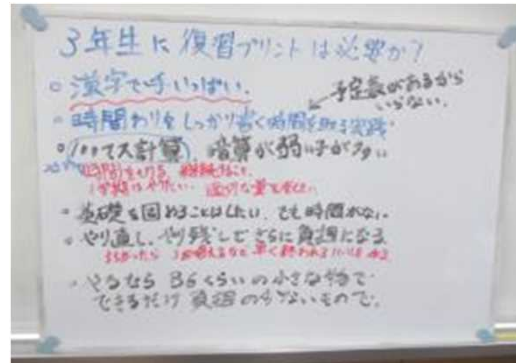 3年生に復習プリントは必要か?
○漢字で手いっぱい。
予定表があるから
いらない。
○時間わりをしっかり書く時間を取る実践
○100マス計算、暗算が弱い子が多い
時間を切る、継続すること。
1学期はやりたい。適切な量を
○基礎を固めることはしたい。でも時間がない。
○やり直し、やり残しでさらに負担になる
○やるなら B6くらいの小さな物で
できるだけ負担の少ないもので。